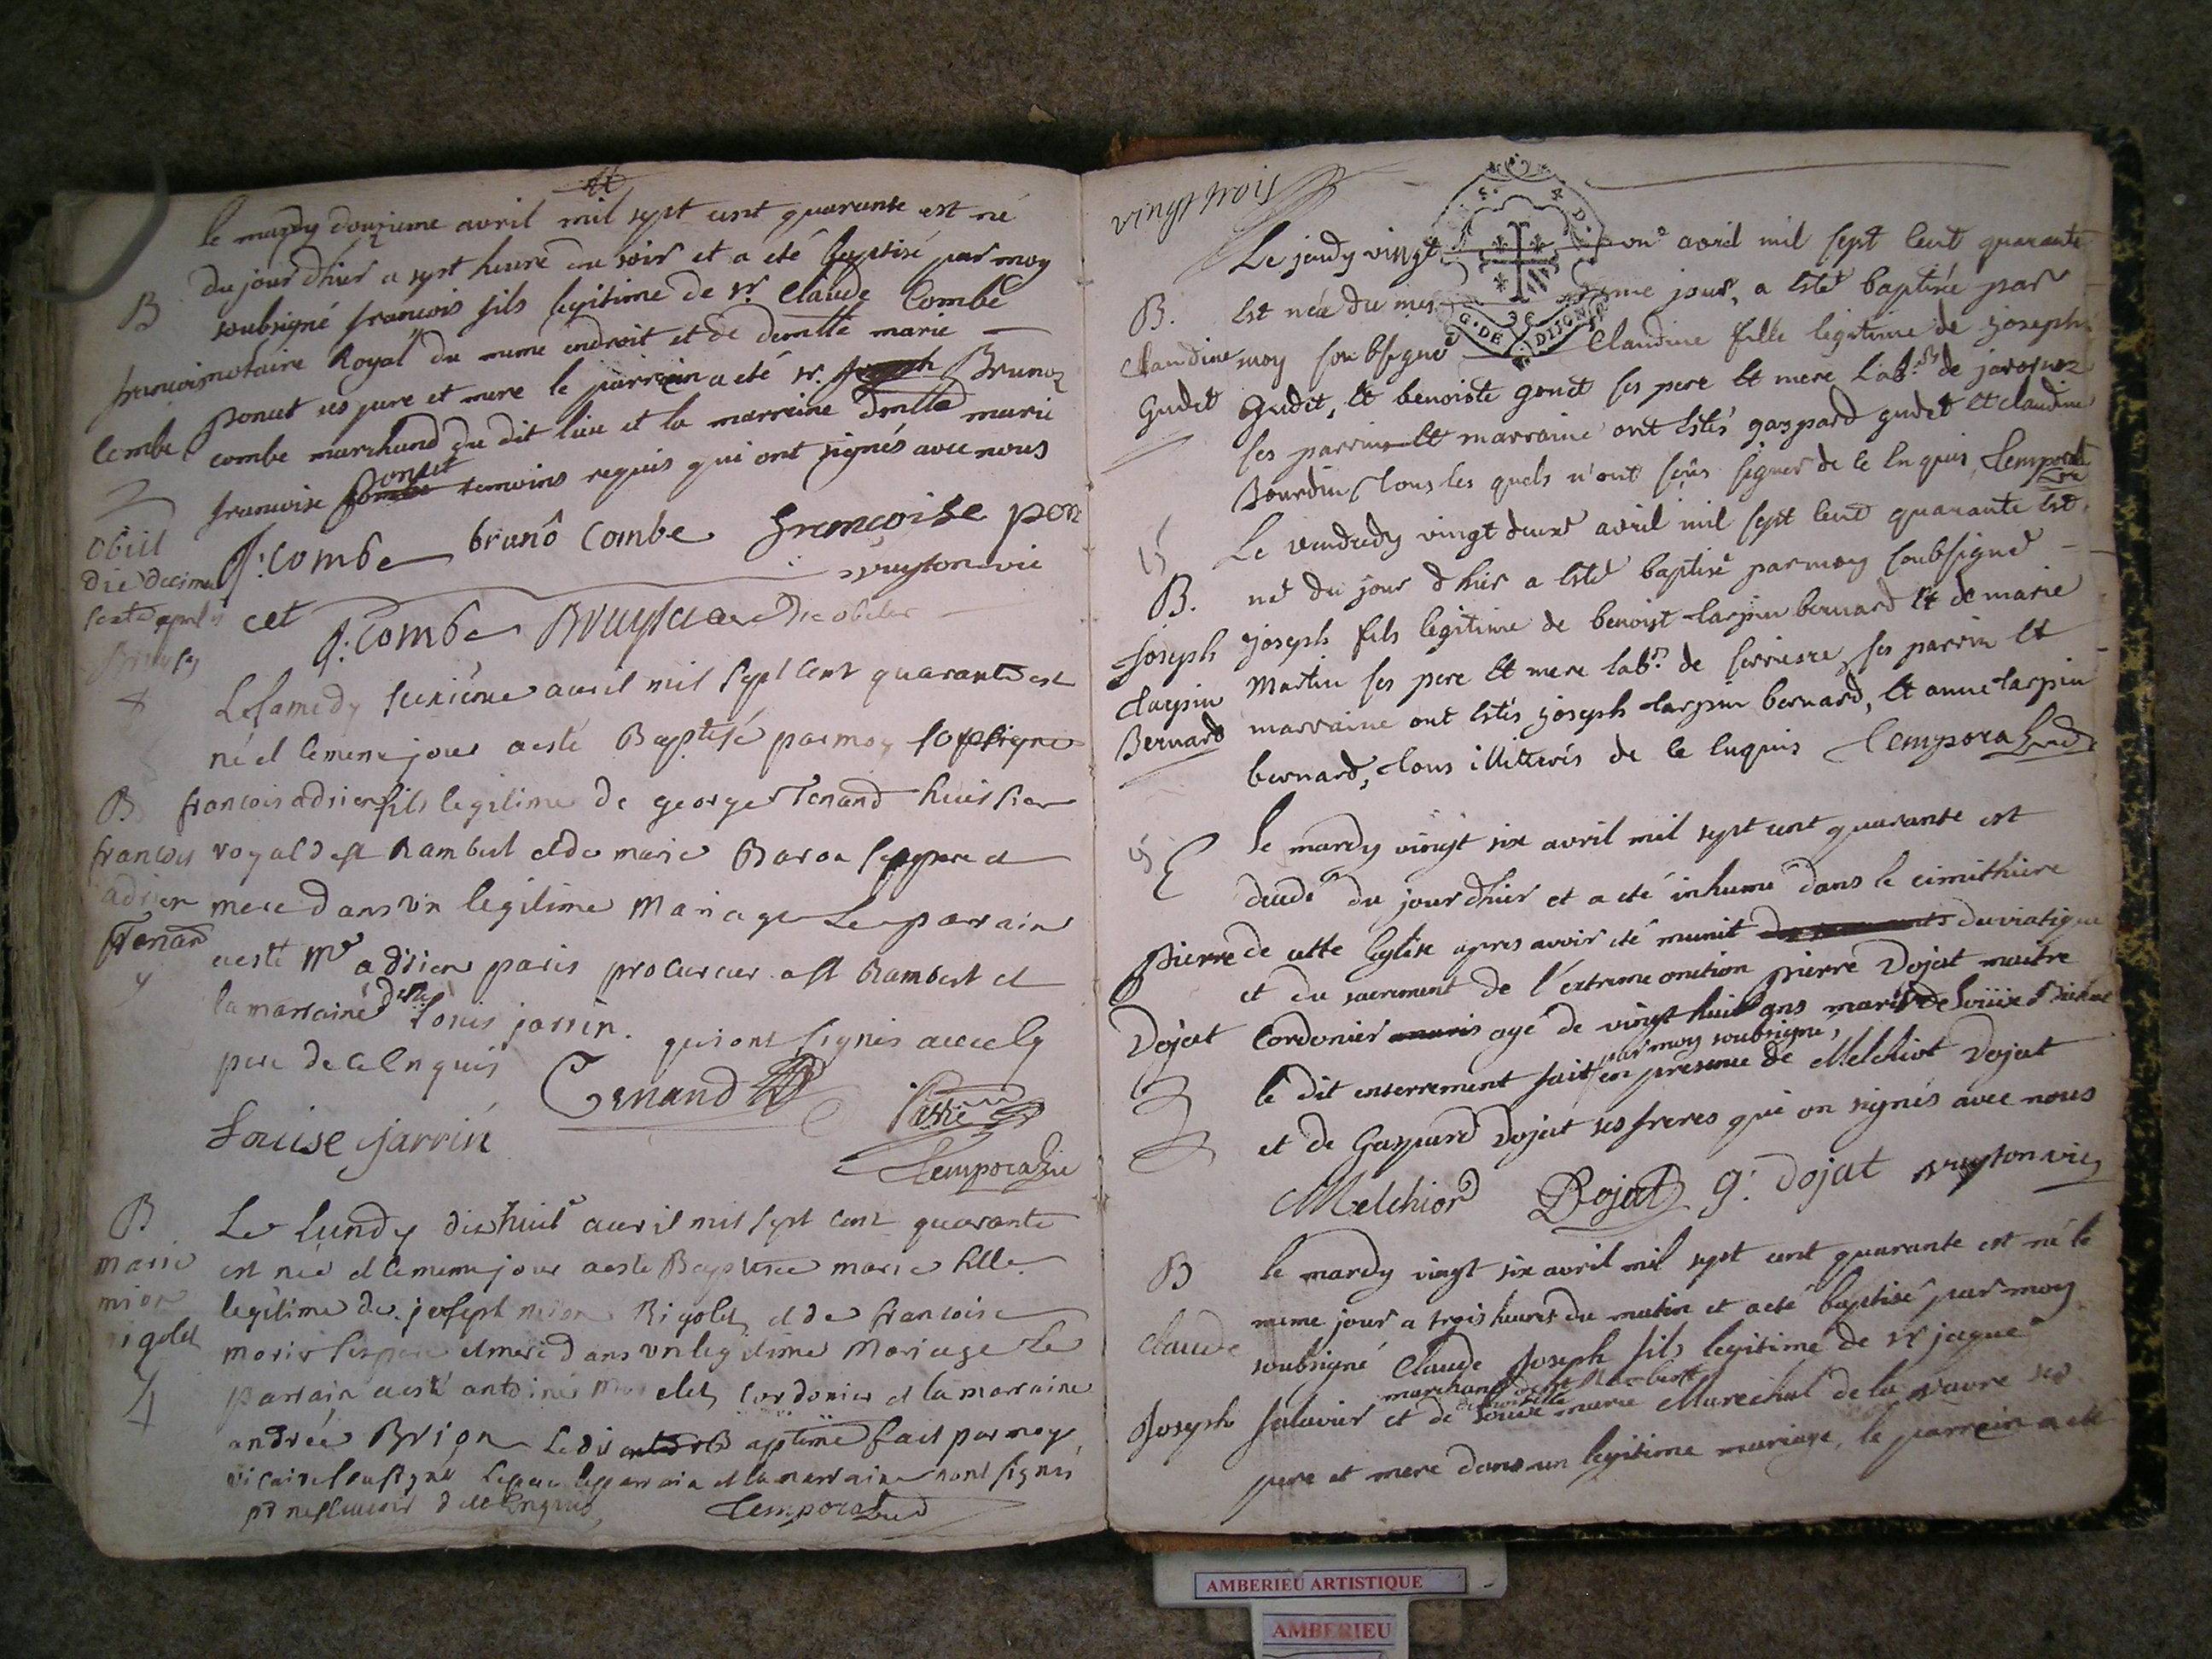 le mardy douzieme avril mil sept cent quarante est né
du jour d'hier a sept heure du soir et a eté baptisé par moy
B soubsigné francois fils legitime de sr. Claude Combe
francois notaire Royal du meme endroit et de demlle marie
Combe Poncet ses pere et mere le parrain a eté sr. Joseph Bruno
combe marchand du dit lieu et la marraine demlle marie
francoise Ponset temoins requis qui ont signés avec nous
obiit
die decima
sexta aprilis
J: Combe brunô Combe francoise pon
cet
J: Combe
Le samedy seizième avril mil sept cent quarante est
né et le meme jour a esté Baptisé par moy sousigné
B francois adrien fils legitime de george Tenand huissier
francois royal de st Rambert et de marie Baron ses pere et
adrien mere dans un legitime Mariage Le parrain
Tenand a esté Mr adrien paris procureur a st Rambert et
la marraine dlle Louise jarrin. qui ont signés avec le
pere de ce Enquis
Tenand
Louise jarrin
Temporal vic
B Le Lundy dix huit avril mil sept cent quarante
marie est née et le meme jour a esté Baptisée marie fille
mion legitime de joseph mion Rigolet et de francoise
rigolet morier ses pere et mere dans un legitime Mariage Le
parrain a esté antoine cordonier et la marraine
andrée Brion Le dit Baptême fait par moy
vicaire sousigné Le pere le parrain et la marraine n'ont signés
pr ne scavoir de ce Enquis, Temporal
vingt trois
G. DE DIJON
Le jeudy vingt un avril mil sept cent quarante
B. est née du mesme jour, a esté baptisée par
Claudine moy soubsigné Claudine fille legitime de joseph
Gudet Gudet, et benoiste genet ses pere et mere lab.rs de javornoz
ses parrin et marraine ont estés gaspard gudet et claudine
Bourdin tous les quels n'ont sçûs signer de ce enquis, Temporal
vic
Le vendredy vingt deux avril mil sept cent quarante est
B. né du jour d'hier a esté baptisé par moy soubsigné
joseph joseph fils legitime de benoist tarpin bernard et de marie
tarpin Martin ses pere et mere lab.rs de serriere, ses parrin et
Bernard marraine ont estés joseph tarpin bernard, et anne tarpin
bernard, tous illitterés de ce enquis Temporal
E le mardy vingt six avril mil sept cent quarante est
decedé du jour d'hier et a eté inhumé dans le cimithiere
Pierre de cette Eglise apres avoir eté munit du viatique
et du sacrement de l'extreme onction pierre Dojat maitre
Dojat Cordonier agé de vingt huit ans mari de Louise
par moy soubsigné,
le dit enterrement fait en presence de Melchiot Dojat
et de Gaspard Dojat ses freres qui on signés avec nous
Melchior Dojat g: dojat
B le mardy vingt six avril mil sept cent quarante est né le
meme jour a trois heures du matin et a eté baptisé par moy
Claude soubsigné Claude Joseph fils legitime de sr jaque
marchand de st Rambert
demoiselle
Joseph Salavier et de Louise marie Marechal de la vavre ses
pere et mere dans un legitime mariage, le parrein a eté
AMBERIEU ARTISTIQUE
AMBERIEU